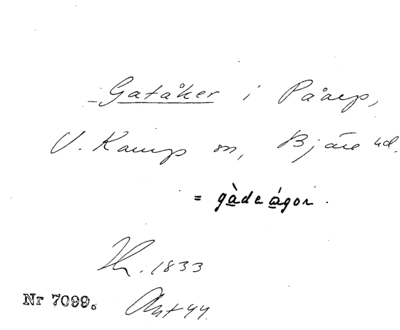 Gatåker i Påarp,
V. Karup sn, Bjäre hd.
= gàdeágor.
Th. 1833
Nr 7099.